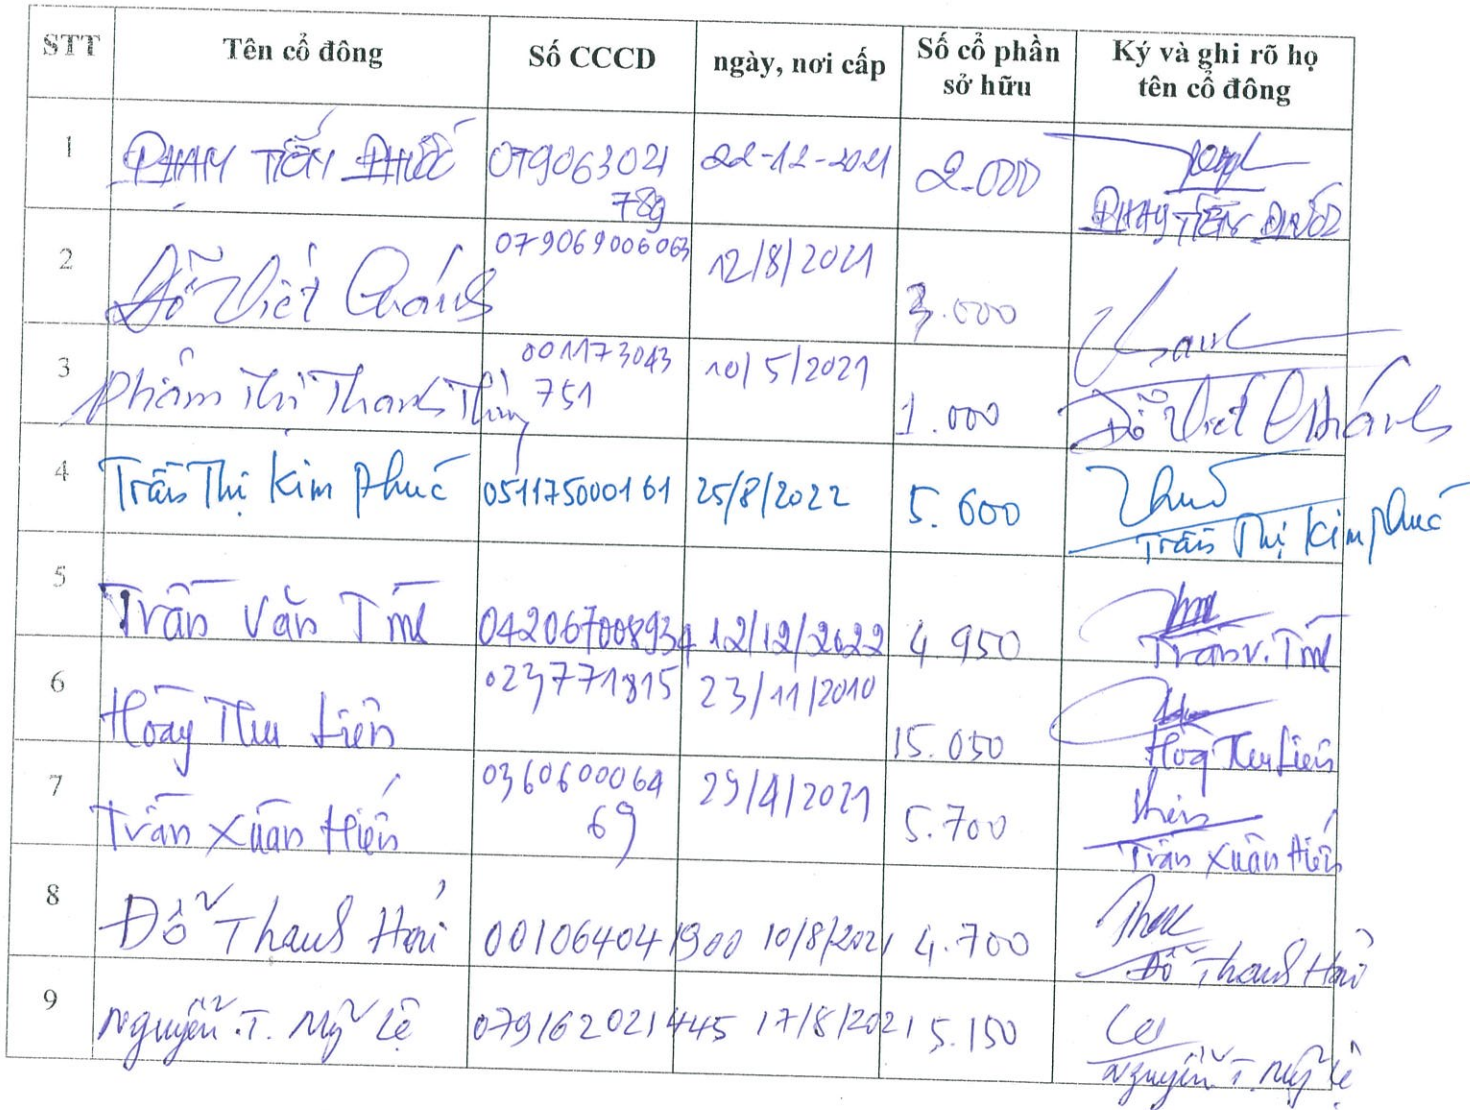 STT Tên cổ đông Số CCCD ngày, nơi cấp Số cổ phần sở hữu Ký và ghi rõ họ tên cổ đông
1 PHẠM TIẾN PHƯỚC 079063021789 22-12-2021 2.000 PHẠM TIẾN PHƯỚC
2 Đỗ Viết Khánh 079069006063 12/8/2021 3.000 Khanh Đỗ Viết Khánh
3 Phạm Thị Thanh Thủy 001173043751 10/5/2021 1.000
4 Trần Thị Kim Phúc 051175000161 25/8/2022 5.600 Phuc Trần Thị Kim Phúc
5 Trần Văn 042067008934 12/12/2022 4 950 Trần V.
6 Hoàng Thu Liên 023771815 23/11/2010 15.050 Hoàng Thu Liên
7 Trần Xuân Hiến 036060006469 29/4/2021 5.700 Hiến Trần Xuân Hiến
8 Đỗ Thanh Hải 001064041900 10/8/2021 4.700 Đỗ Thanh Hải
9 Nguyễn.T. Mỹ Lệ 079162021445 17/8/2021 5.150 Le Nguyễn T. Mỹ Lệ